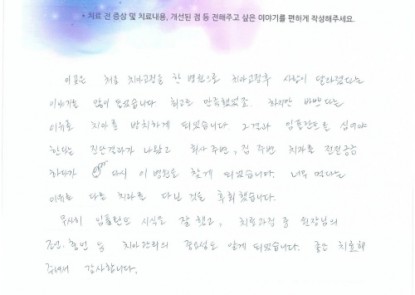 * 치료 전 증상 및 치료내용, 개선된 점 등 전해주고 싶은 이야기를 편하게 작성해주세요.
이곳은 처음 치아교정을 한 병원으로 치아교정후 사람이 달라졌다는
이야기를 많이 들었습니다 최고로 만족했었고. 하지만 바쁘다는
이유로 치아를 방치하게 되었습니다 그결과 임플란트를 심어야
한다는 진단결과가 나왔고 회사 주변, 집 주변 치과를 전전긍긍
하다가 다시 이 병원을 찾게 되었습니다. 너무 멀다는
이유로 다른 치과를 다닌 것을 후회했습니다.
무사히 임플란트 시식도 잘 했고, 치료과정 중 원장님의
전. 후 및 치아관리의 중요성도 알게 되었습니다. 좋은 치료해
주셔서 감사합니다.